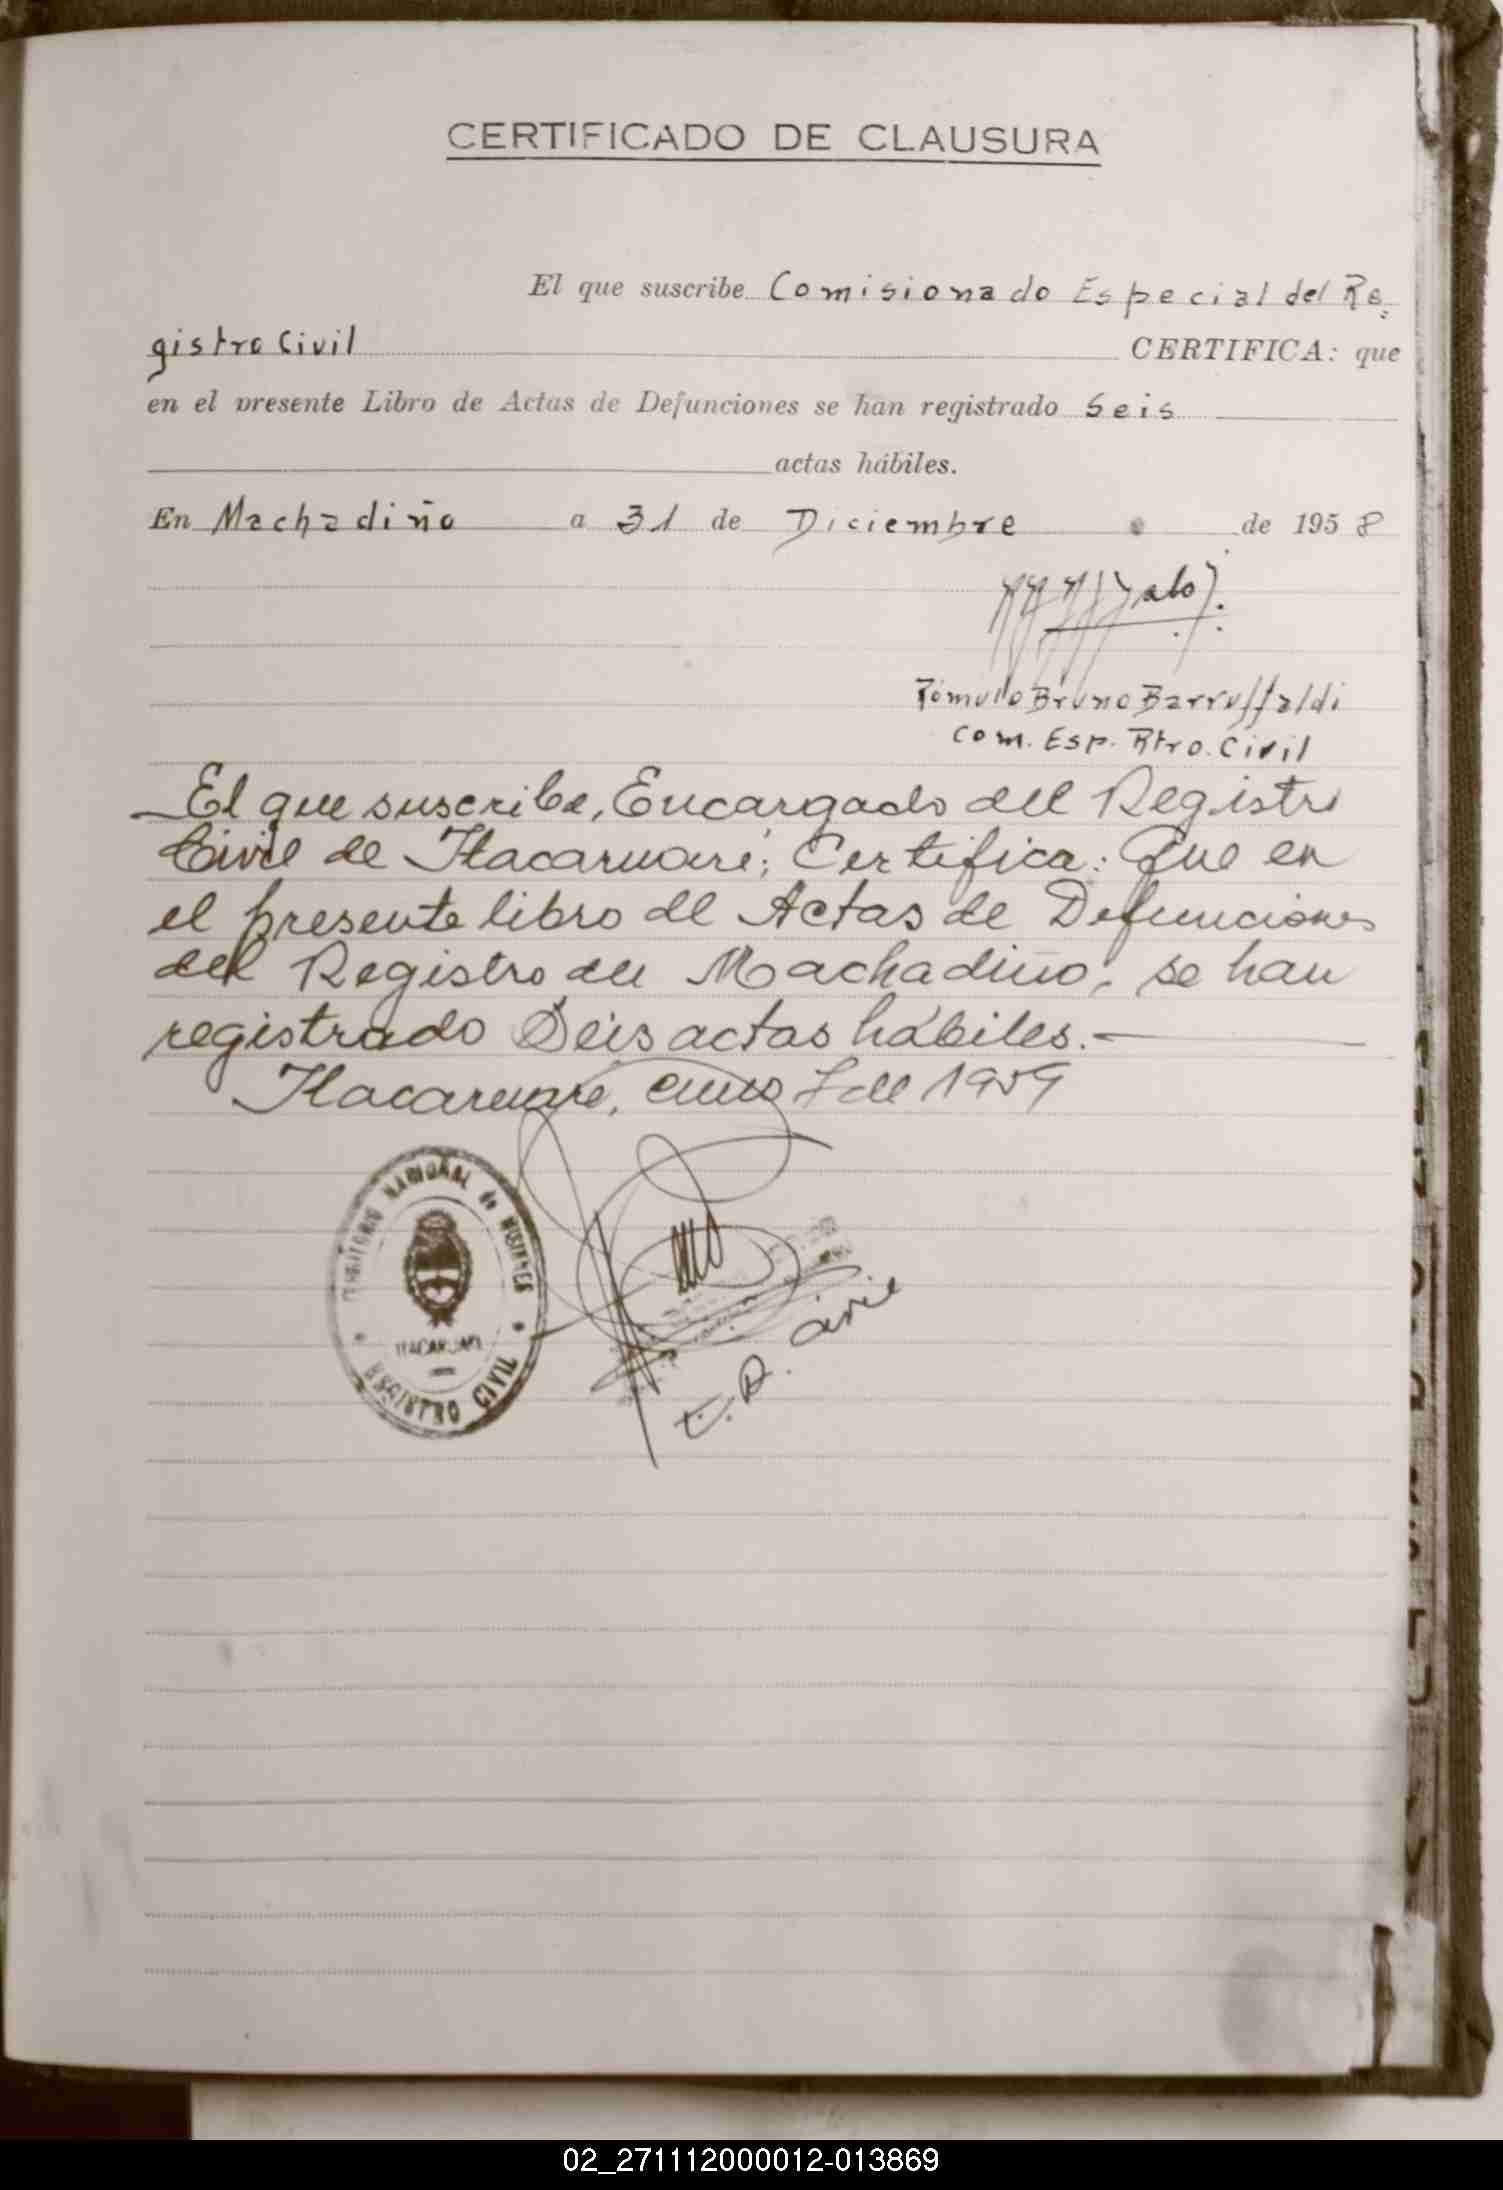 CERTIFICADO DE CLAUSURA
El que suscribe Comisionado Especial del Re=
gistro Civil CERTIFICA: que
en el presente Libro de Actas de Defunciones se han registrado Seis
actas hábiles.
En Machadiño a 31 de Diciembre de 1958
Rómulo Bruno Barruffaldi
Com. Esp. Rtro. Civil
El que suscribe, Encargado del Registro
Civil de Itacaruaré; Certifica: Que en
el presente libro de Actas de Defunciones
del Registro de Machadiño, se han
registrado Seis actas hábiles.-
Itacaruaré, enero 7 de 1959
TERRITORIO NACIONAL de MISIONES
ITACARUARE
REGISTRO CIVIL
E. R. Civil
02_271112000012-013869